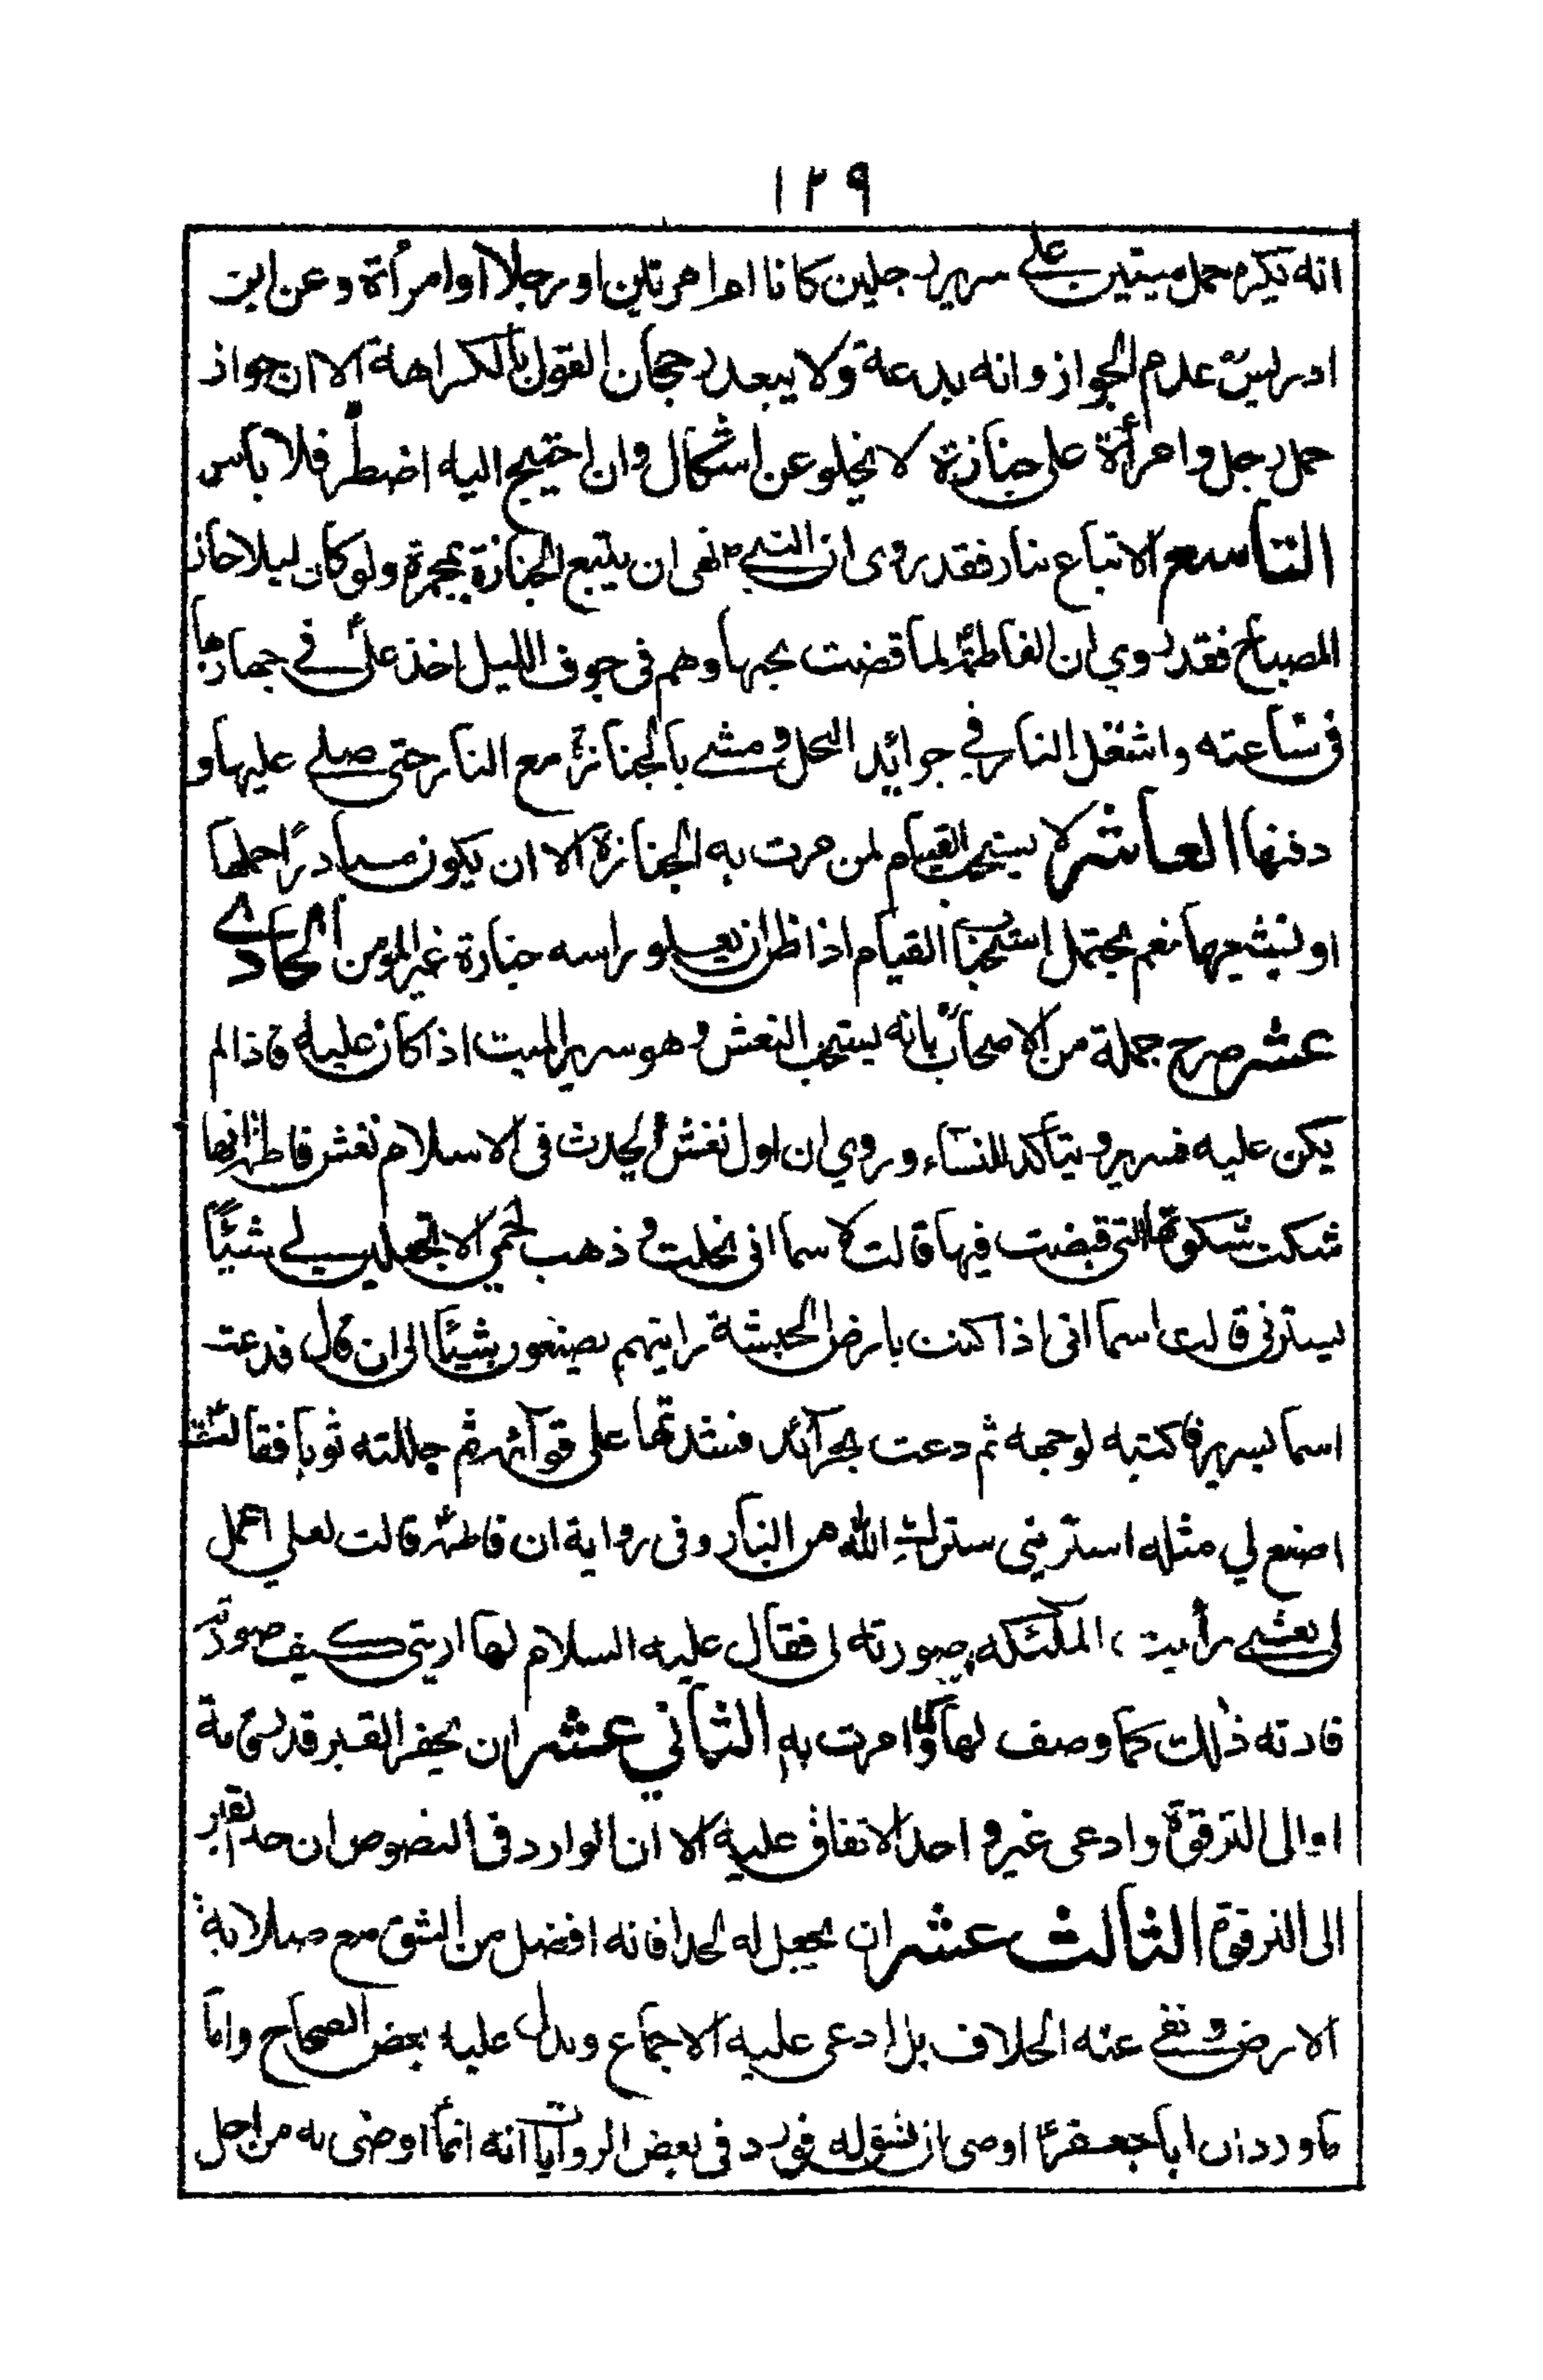 ١٢٩
انه يكره حمل ميتين على سرير رجلين كانا ام امرتين او رجلا او امرأة وعن ابن
ادريس عدم الجواز وانه بدعة ولا يبعد رجحان القول بالكراهة الا ان جواز
حمل رجل وامرأة على جنازة لا يخلو عن اشكال وان احتيج اليه اضطر فلا باس
التاسع الاتباع بنار فقد روى ان النبي نهى ان يتبع الجنازة بمجمرة ولو كان ليلا جاز
المصباح فقد روي ان الفاطمة لما قضت نحبها وهم في جوف الليل اخذ علي في جهازها
في ساعته واشتعل النار في جرائد النحل ومشى بالجنازة مع النار حتى صلى عليها و
دفنها العاشر لا يستحب القيام لمن مرت به الجنازة الا ان يكون مبادرًا حملها
او تشيعها نعم يحتمل استحبا القيام اذا ظل ان يعلو راسه جنازة غير المومن الحادي
عشر صرح جملة من الاصحاب بانه يستحب النعش وهو سرير الميت اذا كان عليه فاذا لم
يكن عليه فسرير ويتأكد للنساء وروي ان اول نعش احدث في الاسلام نعش فاطمة انها
شكت شكوتها التي قبضت فيها قالت لاسما اني نحلت وذهب لحمي الا تجعلين لي شيئًا
يسترني قالت اسما اني اذا كنت بارض الحبشة رايتهم يصنعون شيئا الى ان قال فدعت
اسما بسرير فاكتبه لوجهه ثم دعت بجرائد فشدتها على قوائمه ثم جللته ثوبا فقالت
اصنع لي مثله استريني سترك الله من النار وفي رواية ان فاطمة قالت لعلي اعمل
لى نعشى رأيت الملئكه صورته لى فقال عليه السلام لها اريتي كيف صورته
فارته ذلك كما وصف لها وامرت به الثاني عشر ان يحفر القبر قدر قامة
او الى الترقوة وادعى غير واحد الاتفاق عليه الا ان الوارد في النصوص ان حد القبر
الى الترقوة الثالث عشر ان يجعل له لحدا فانه افضل من الشق مع صلابة
الارض ونفي عنه الخلاف بل ادعى عليه الاجماع ويدل عليه بعض الصحاح واما
ما ورد ان ابا جعفر اوصى ان نشق له فورد في بعض الروايات انه انما اوصى به من اجل